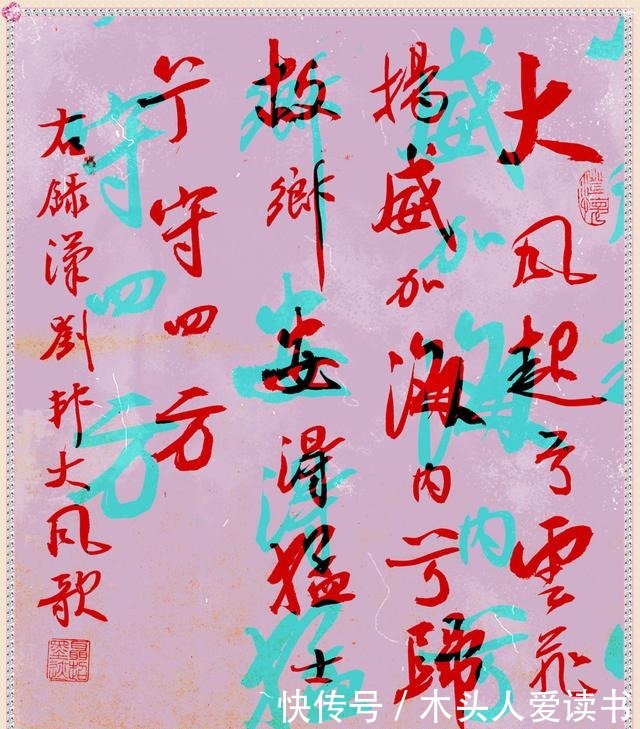 大风起兮雲飛
揚威加海内兮歸
故鄉安得猛士
兮守四方
右録漢劉邦大风歌
快传号 / 木头人爱读书